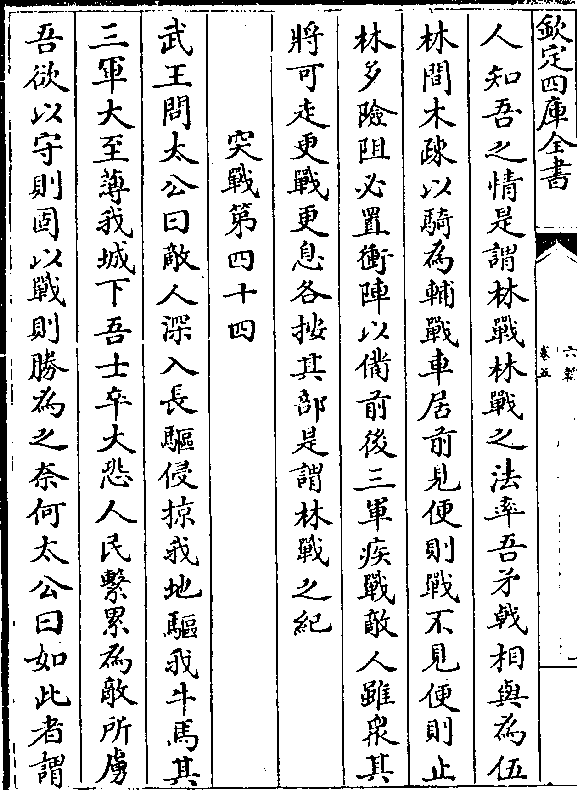 欽定四庫全書
六韜
卷五
人知吾之情是謂林戰林戰之法率吾矛㦸相與為伍
林間木疎以騎為輔戰車居前見便則戰不見便則止
林多險阻必置衝陣以備前後三軍疾戰敵人雖衆其
將可走更戰更息各按其部是謂林戰之紀
突戰第四十四
武王問太公曰敵人深入長驅侵掠我地驅我牛馬其
三軍大至薄我城下吾士卒大恐人民繫累為敵所虜
吾欲以守則固以戰則勝為之奈何太公曰如此者謂